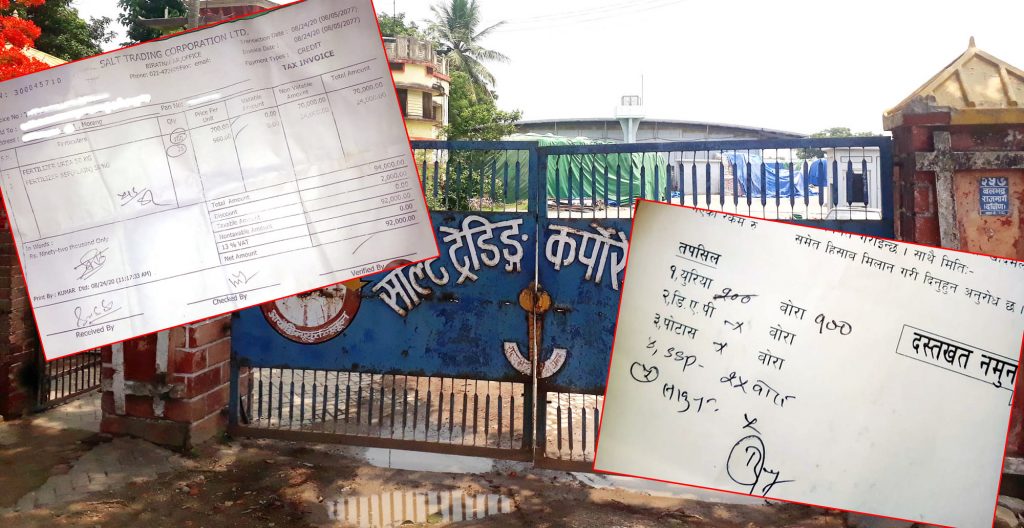 N: 300045710
SALT TRADING CORPORATION LTD.
BIRATNAGAR OFFICE
Transaction Date : 08/24/20 (08/05/2077)
Invoice Date : 08/24/20 (08/05/2077)
Payment Types : CREDIT
TAX INVOICE
Pan No:
Morang
Particulars
Qty
Price Per Unit
Vatable Amount
Non Vatable Amount
Total Amount
FERTILIZER UREA 50 KG
700.00
0.00
70,000.00
70,000.00
960.00
0.00
24,000.00
24,000.00
94,000.00
Total Amount
2,000.00
Discount
0.00
Taxable Amount
92,000.00
Nontaxable Amount
0.00
13 % VAT
92,000.00
Net Amount
In Words :
Rs. Ninety-two thousand Only
Print By : KUMAR Dtd: 08/24/20 (11:17:33 AM)
Received By
Checked By
Verified By
साल्ट ट्रेडिङ्ग कर्पोरे
बलभद्र
राजमार्ग
रकम रु
समेत हिसाव मिलान गरी दिनुहुन अनुरोध छ।
तपसिल
१. युरिया १०० वोरा १००
२. डि.ए.पी x वोरा
३. पोटास x वोरा
४, SSP- २५ वोरा
दस्तखत नमुन